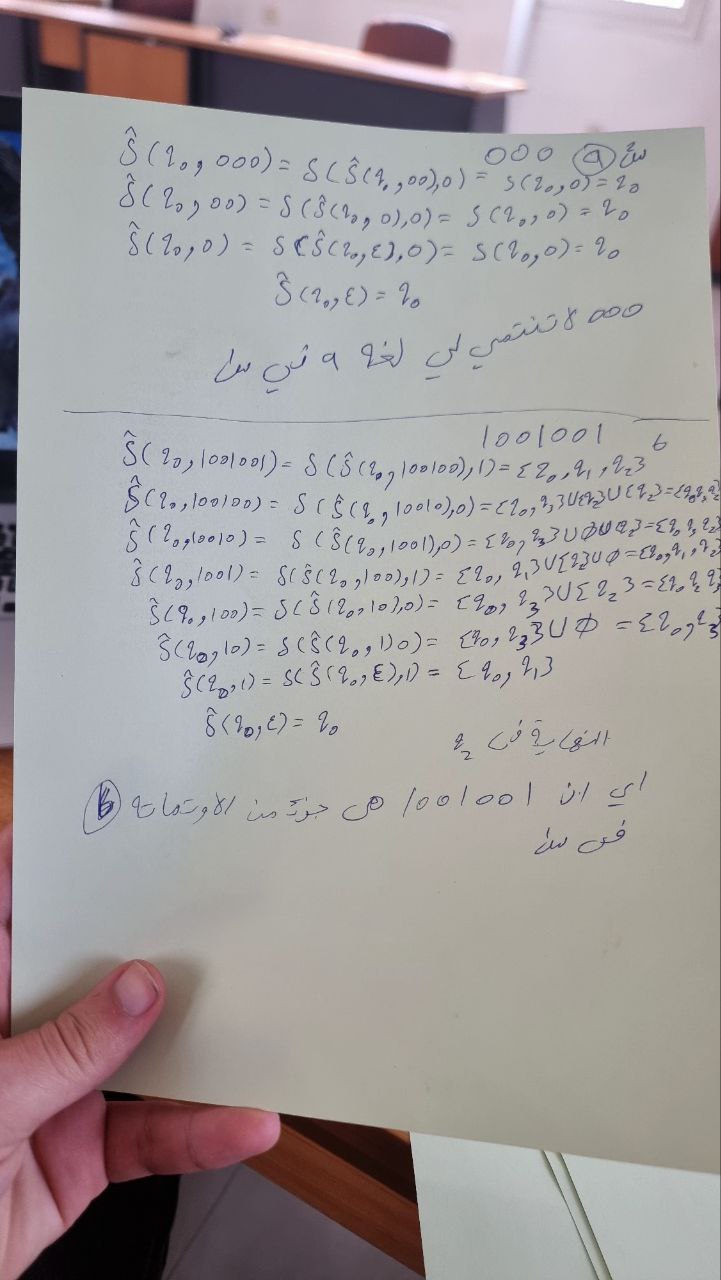 000 (a) س
δ̂(q₀, 000) = δ(δ̂(q₀, 00), 0) = δ(q₀, 0) = q₀
δ̂(q₀, 00) = δ(δ̂(q₀, 0), 0) = δ(q₀, 0) = q₀
δ̂(q₀, 0) = δ(δ̂(q₀, ε), 0) = δ(q₀, 0) = q₀
δ̂(q₀, ε) = q₀
000 لا تنتمي لي لغة a في س
1001001 b
δ̂(q₀, 1001001) = δ(δ̂(q₀, 100100), 1) = {q₀, q₁, q₂}
δ̂(q₀, 100100) = δ(δ̂(q₀, 10010), 0) = {q₀, q₃} ∪ {q₂} ∪ {q₂} =
δ̂(q₀, 10010) = δ(δ̂(q₀, 1001), 0) = {q₀, q₃} ∪ Φ ∪ q₂ =
δ̂(q₀, 1001) = δ(δ̂(q₀, 100), 1) = {q₀, q₁} ∪ {q₂} ∪ Φ = {q₀, q₁, q₂
δ̂(q₀, 100) = δ(δ̂(q₀, 10), 0) = {q₀, q₃} ∪ {q₂} =
δ̂(q₀, 10) = δ(δ̂(q₀, 1) 0) = {q₀, q₃} ∪ Φ = {q₀, q₃
δ̂(q₀, 1) = δ(δ̂(q₀, ε), 1) = {q₀, q₁}
δ̂(q₀, ε) = q₀
النهاية في q₂
اي ان 1001001 هي جزء من الاوتمات (b)
في س